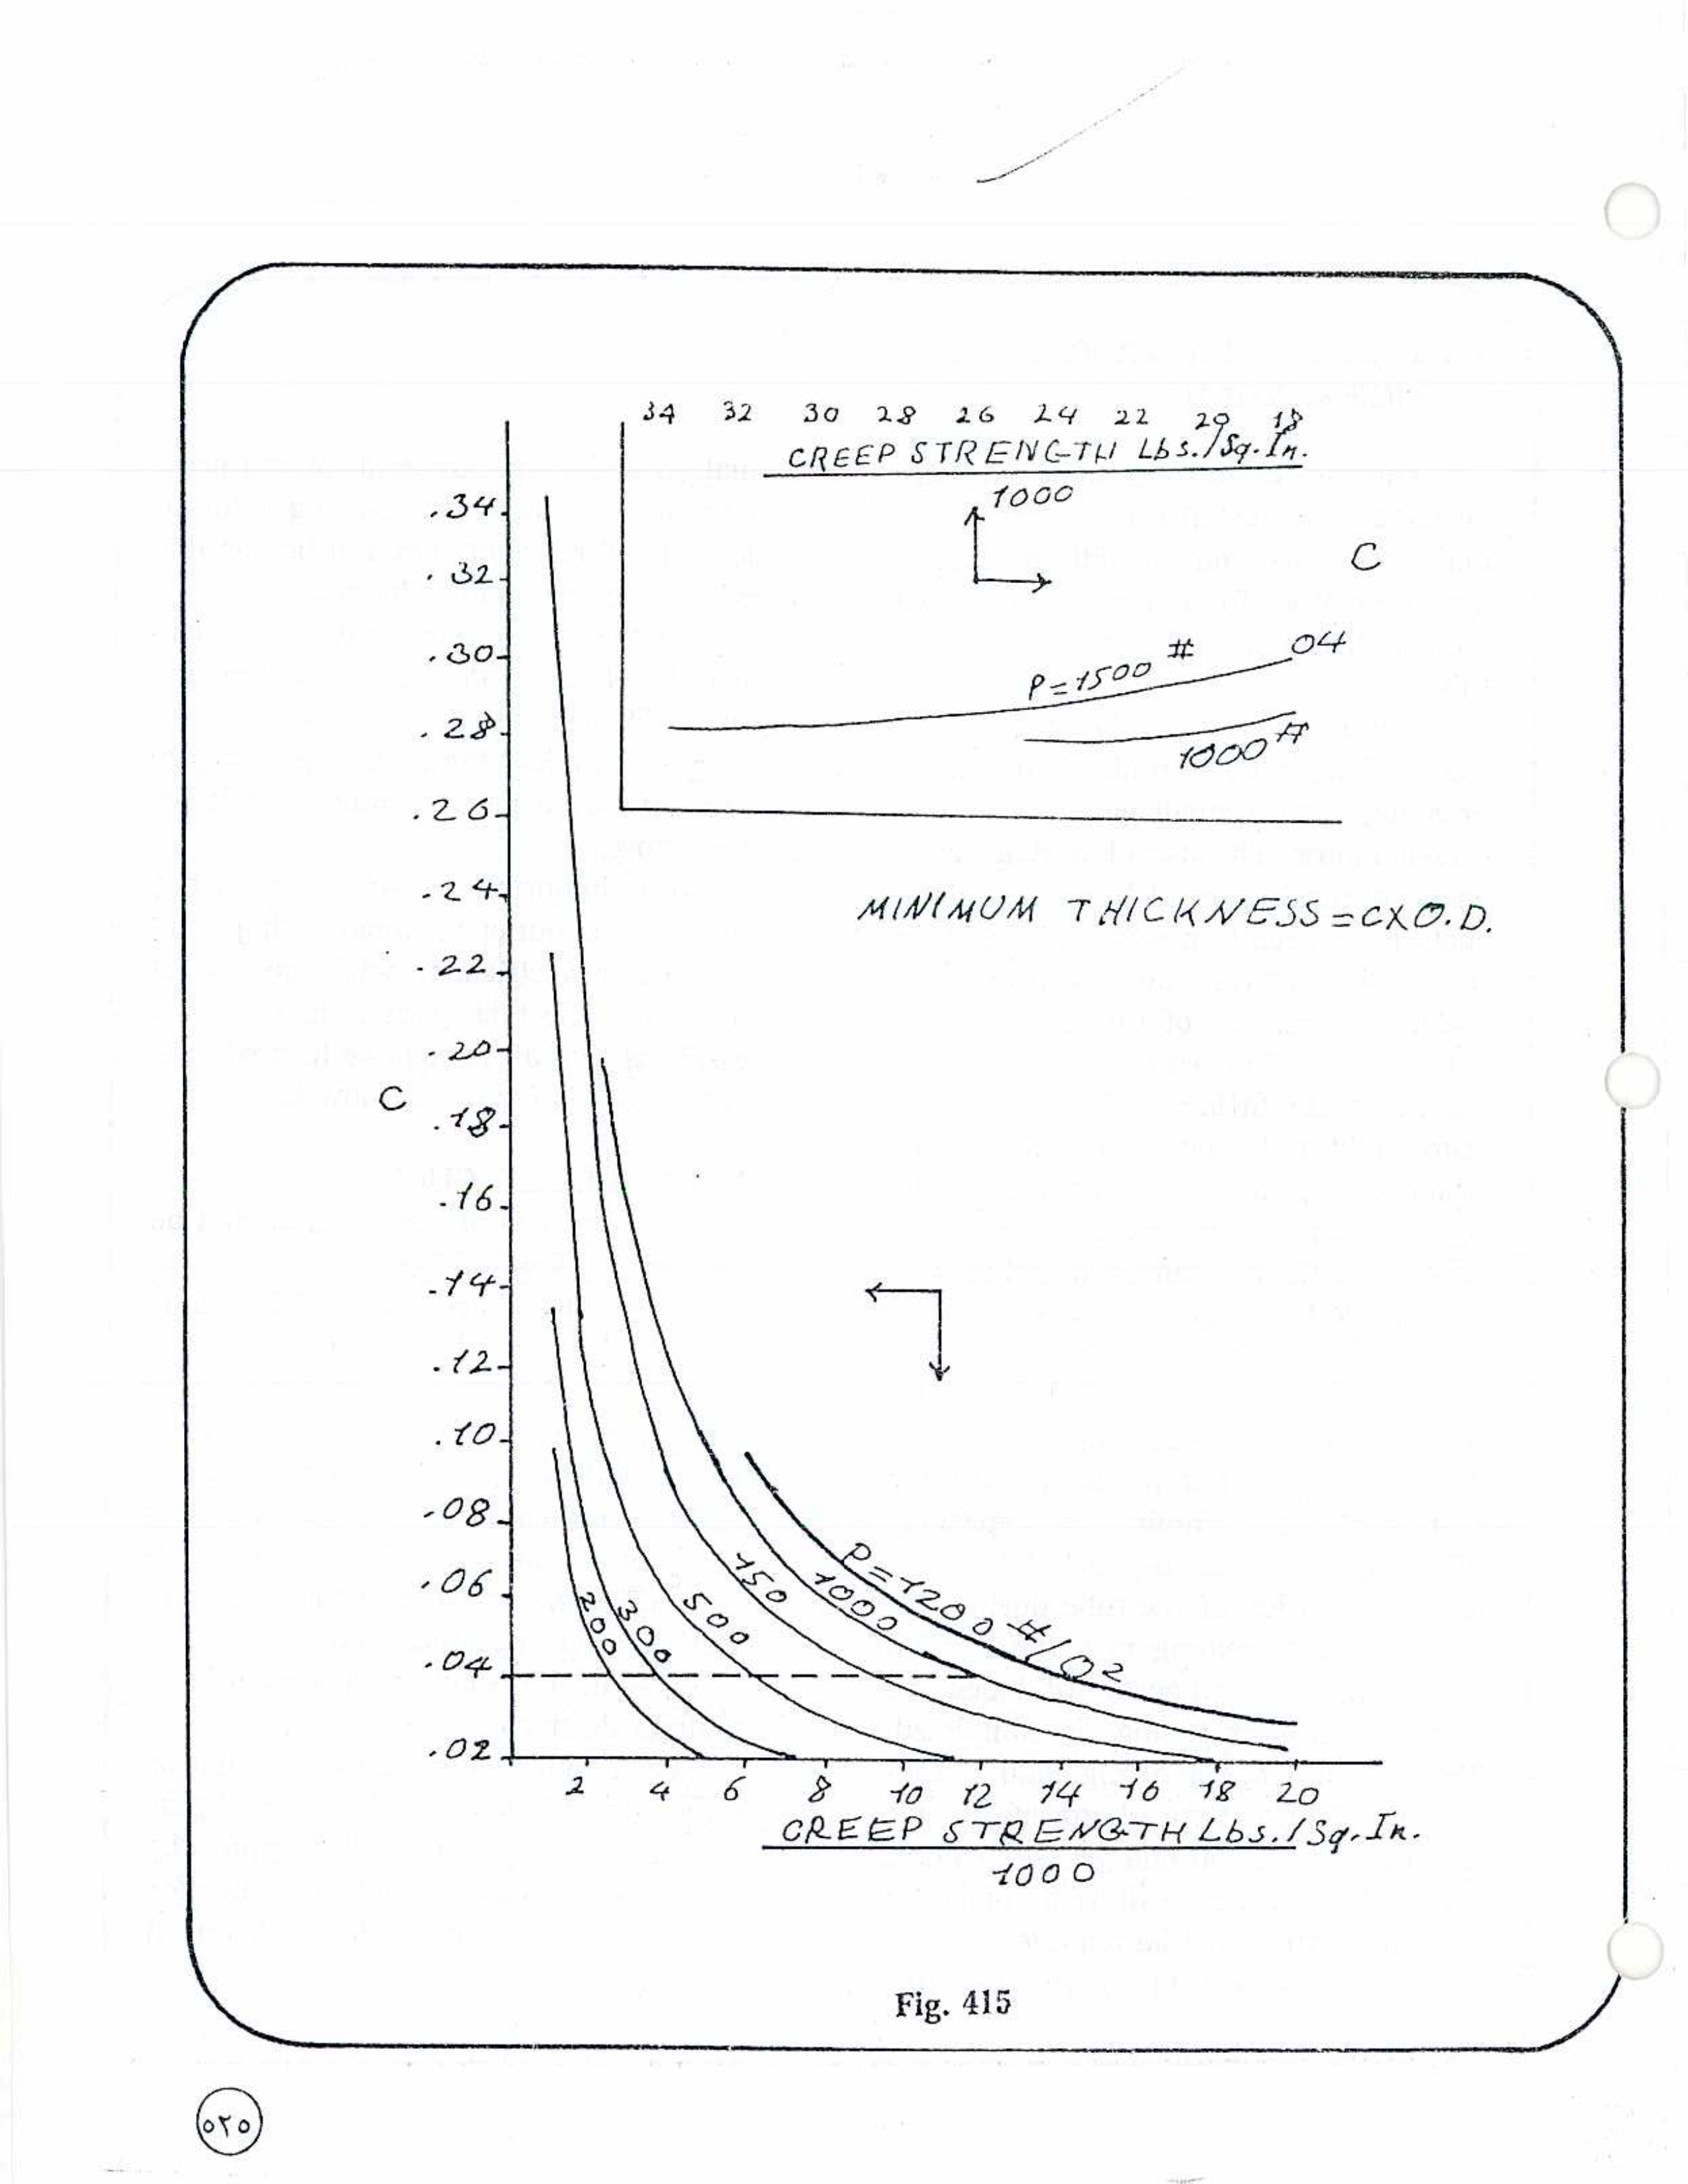 34 32 30 28 26 24 22 20 18
CREEP STRENGTH Lbs./Sq.In.
1000
C
P=1500 #
04
1000 #
MINIMUM THICKNESS=CXO.D.
.34
.32
.30
.28
.26
.24
.22
.20
C
.18
.16
.14
.12
.10
.08
.06
.04
.02
200
300
500
150
1000
P=1200 #/O2
2 4 6 8 10 12 14 16 18 20
CREEP STRENGTH Lbs./Sq.In.
1000
Fig. 415
٥٢٥